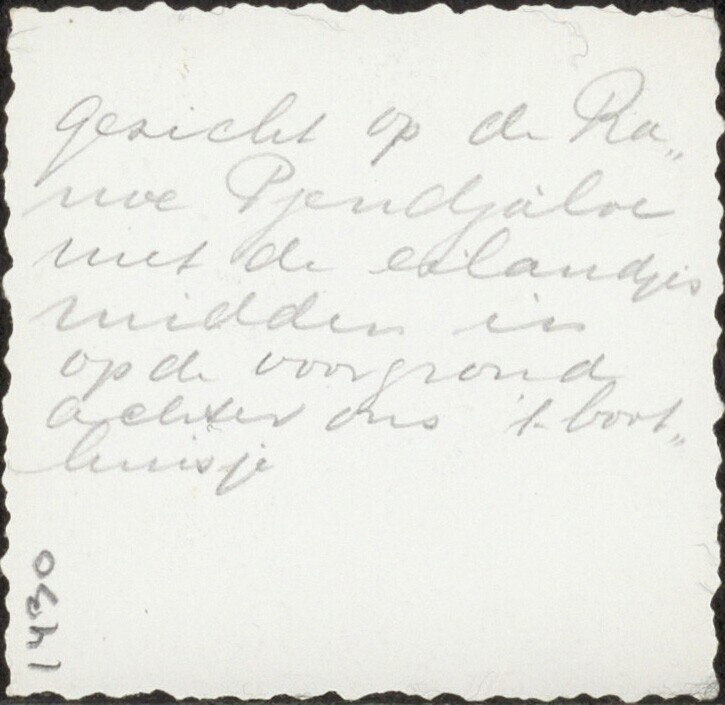 gezicht op de Ra„
noe Pjendjaloe
met de eilandjes
midden in
op de voorgrond
achter ons 't boot„
huisje
1430